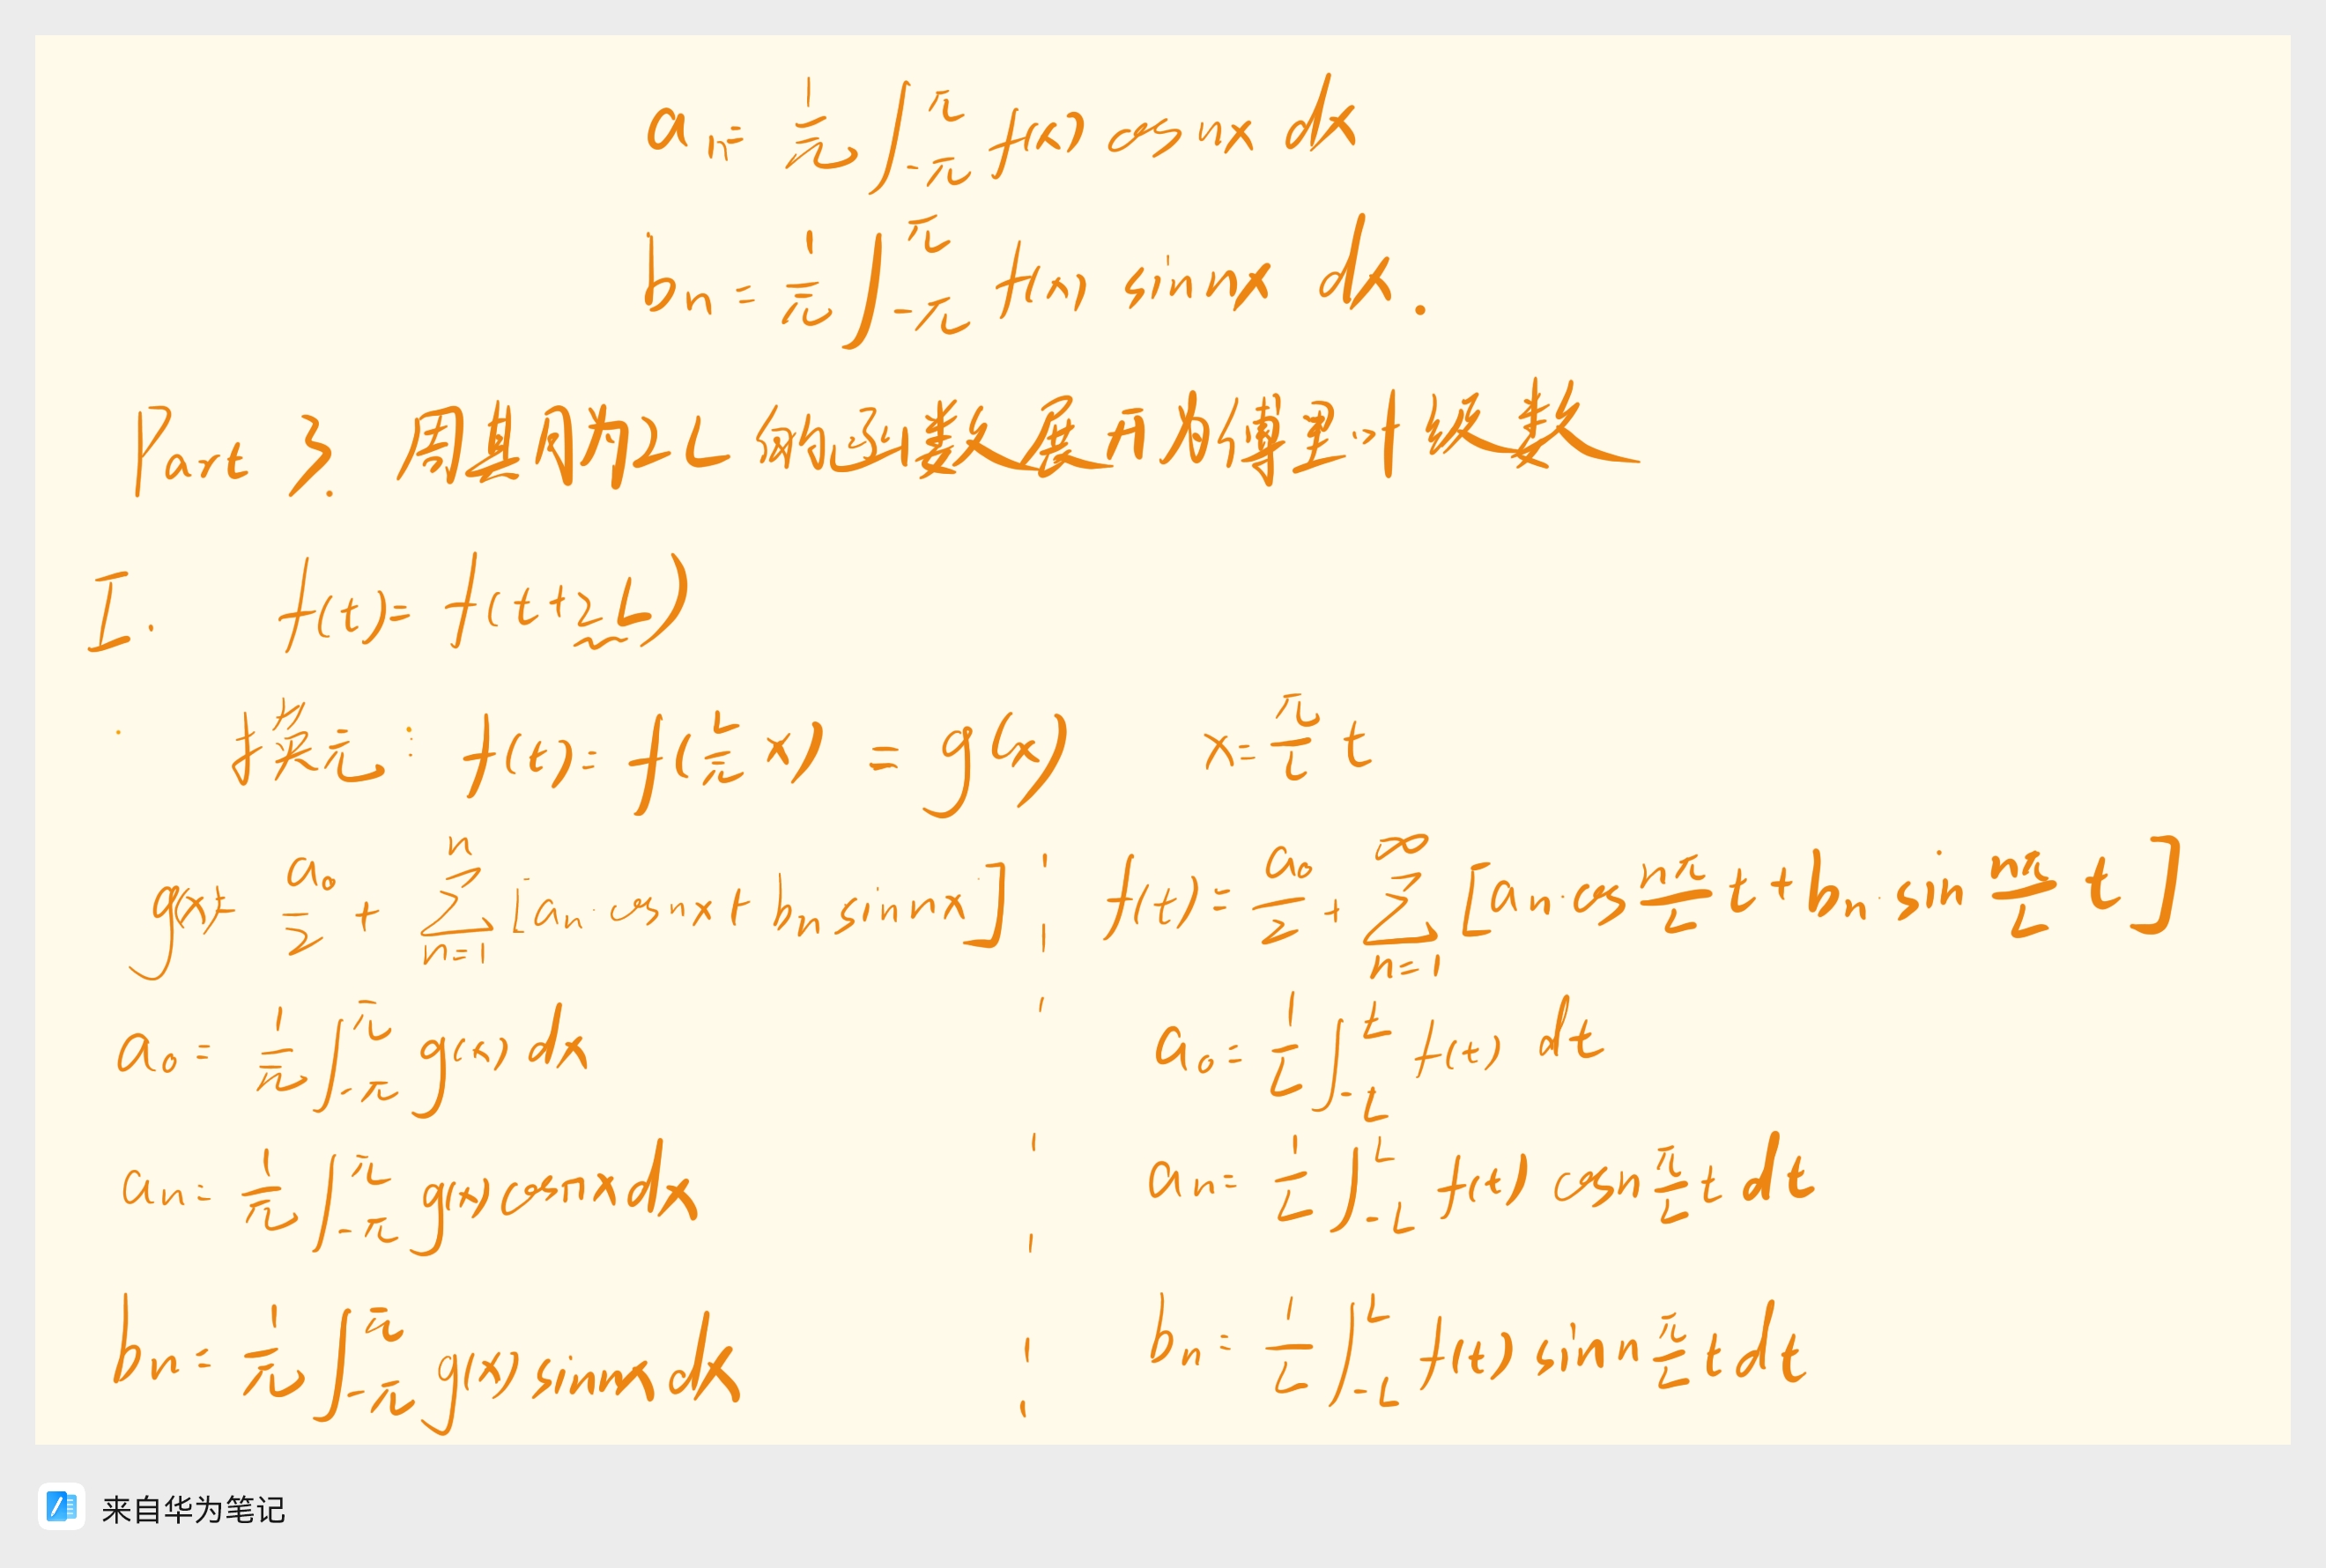 aₙ = 1/π ∫_{-π}^{π} f(x) cos nx dx
bₙ = 1/π ∫_{-π}^{π} f(x) sin nx dx.
Part 3. 周期为2L的函数展开为傅里叶级数
I. f(t) = f(t+2L)
换元: f(t) = f(L/π x) = g(x) x = π/L t
g(x) = a₀/2 + Σ_{n=1}^{n} [aₙ·cos nx + bₙ sin nx] f(t) = a₀/2 + Σ_{n=1}^{∞} [aₙ·cos nπ/L t + bₙ·sin nπ/L t]
a₀ = 1/π ∫_{-π}^{π} g(x) dx a₀ = 1/L ∫_{-L}^{L} f(t) dt
aₙ = 1/π ∫_{-π}^{π} g(x) cos nx dx aₙ = 1/L ∫_{-L}^{L} f(t) cos n π/L t dt
bₙ = 1/π ∫_{-π}^{π} g(x) sin nx dx bₙ = 1/L ∫_{-L}^{L} f(t) sin n π/L t dt
来自华为笔记